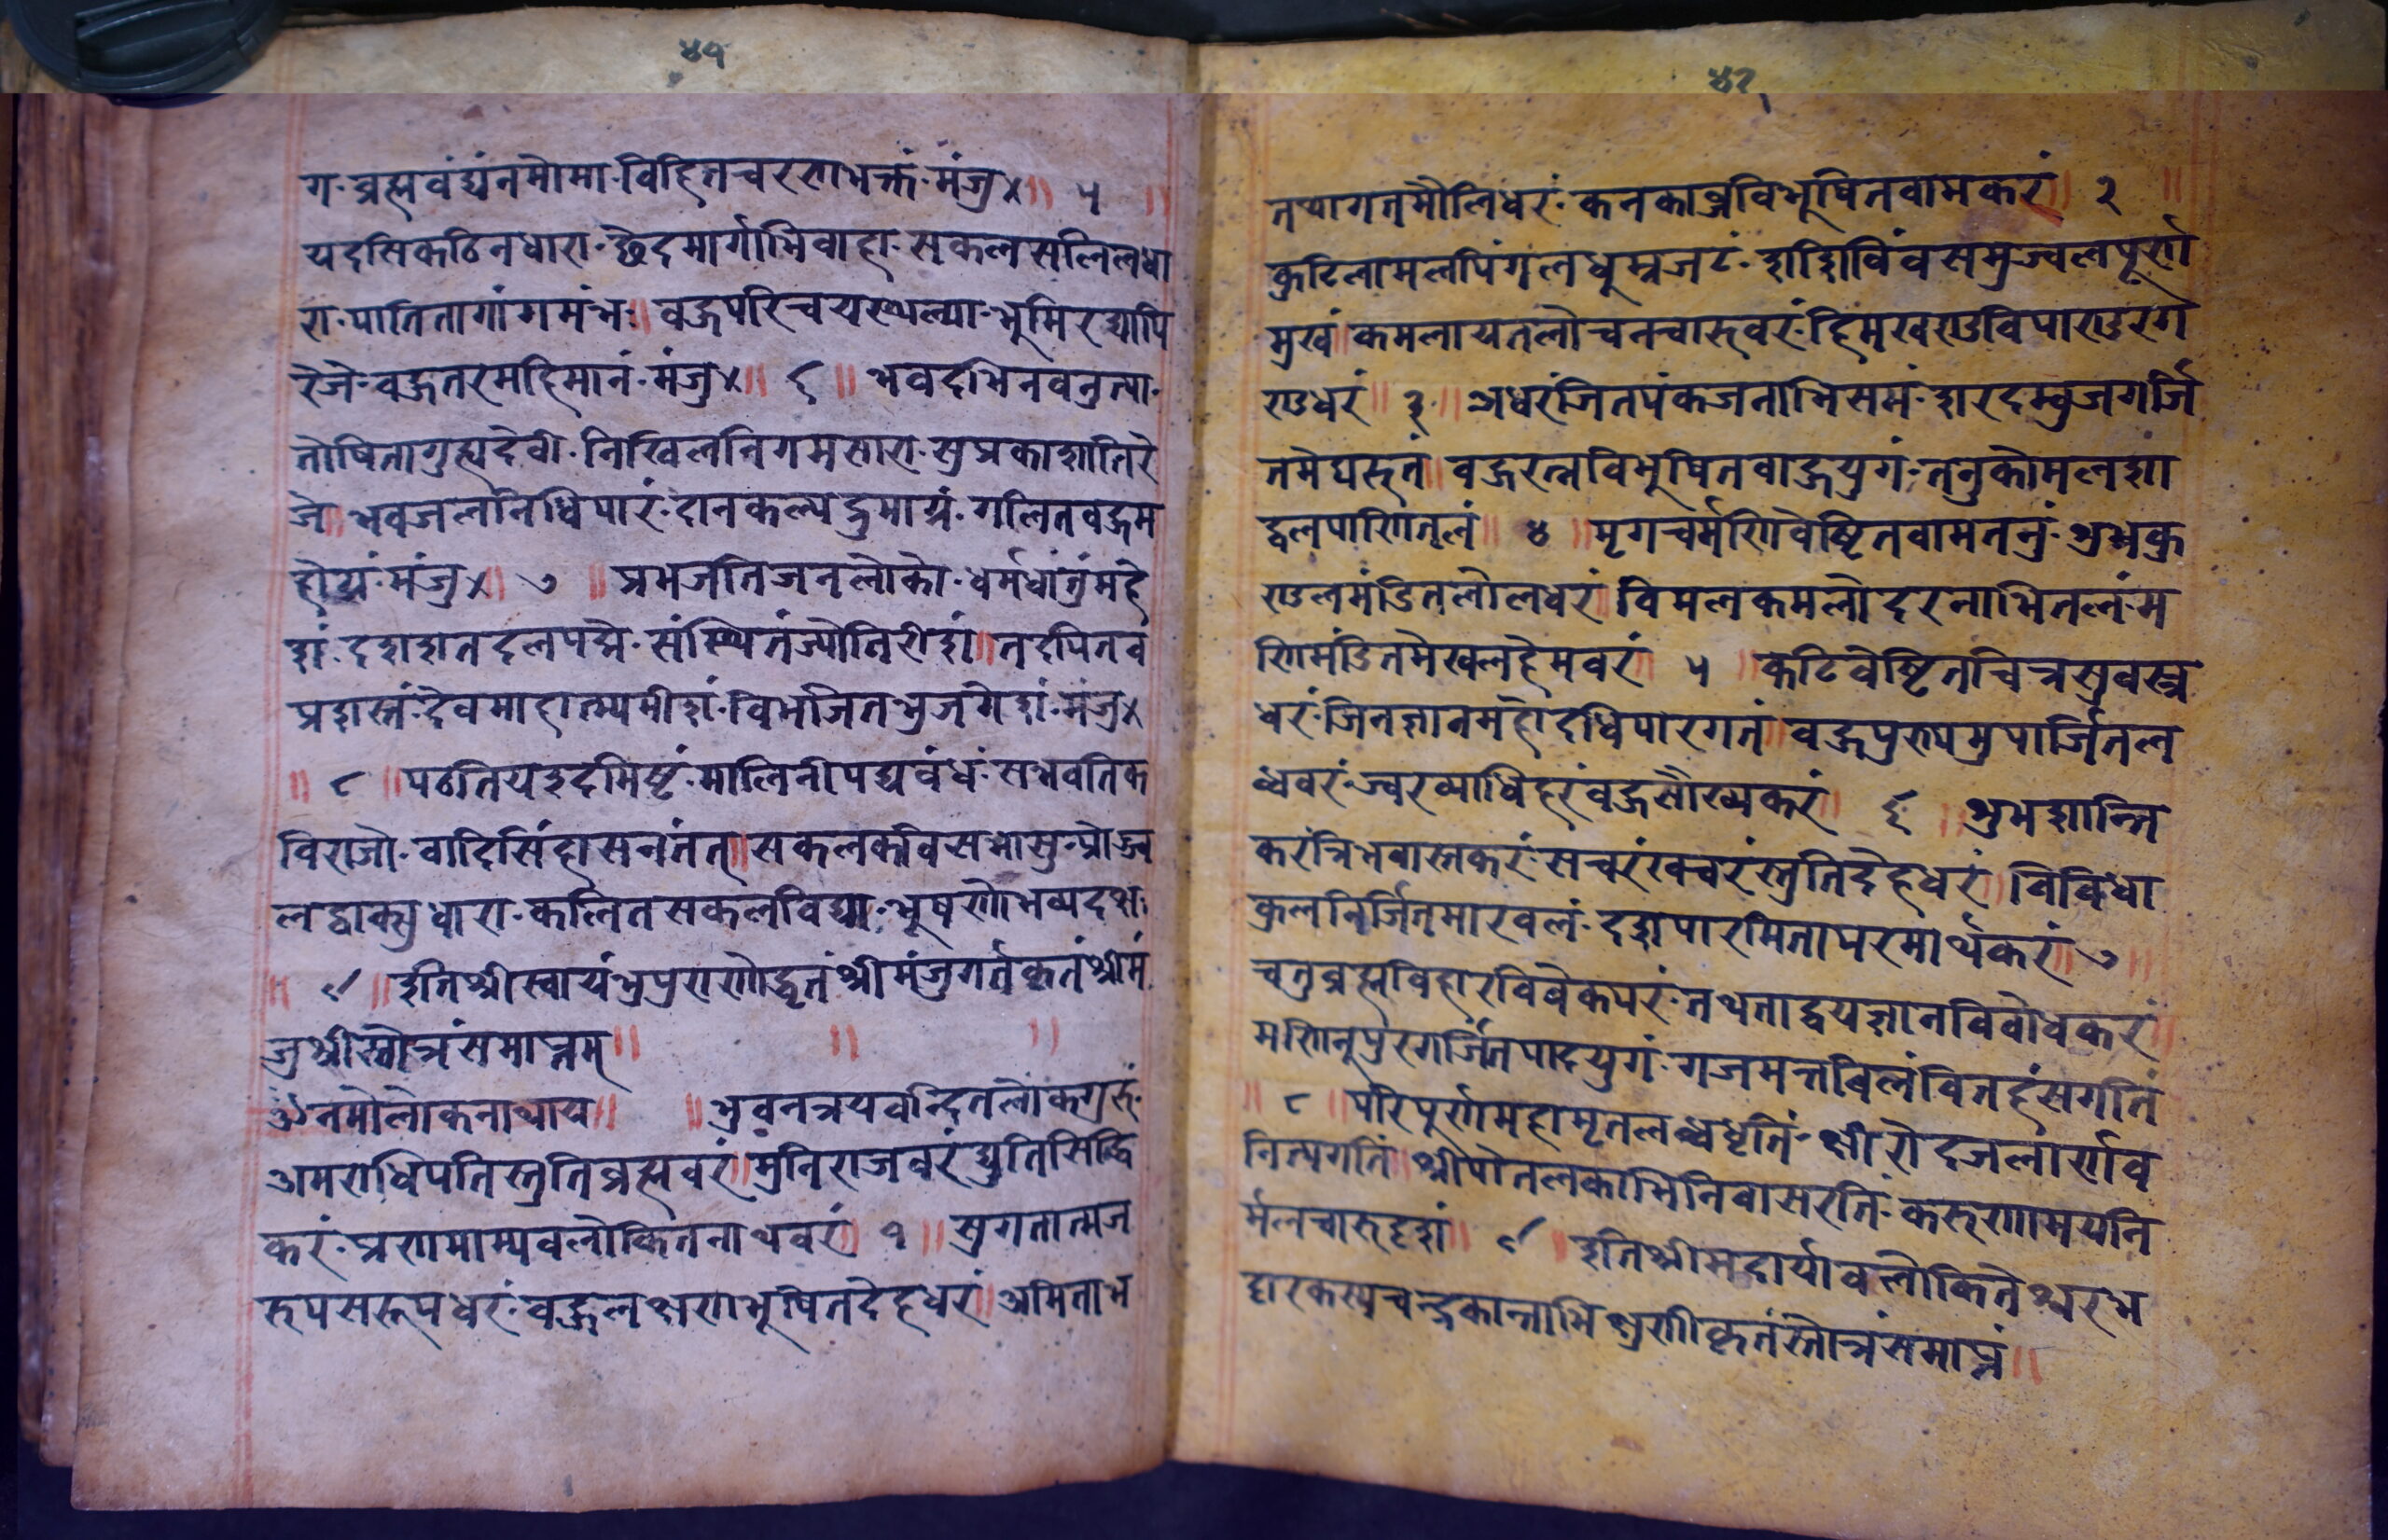 ४१
ग॰ब्रह्मवंद्यंनमोमा॰विहितचरणभक्तं॰मंजु४॥ ५ ॥
यदसिकठिनधारा॰छेदमार्गाभिवाहा॰सकलसलिलधा
रा॰पातितागांगमंभः॥वहुपरिचयस्थल्या॰भूमिरद्यापि
रेजे॰वहुतरमहिमानं॰मंजु४॥ ६ ॥भवदभिनवनुत्या॰
तोषितागुह्यदेवी॰निखिलनिगमसारा॰सुप्रकाशातिरे
जे॥भवजलनिधिपारं॰दानकल्पद्रुमाग्रं॰गलितवहुम
होग्रं॰मंजु४॥ ७ ॥प्रभजतिजनलोको॰धर्मधातुंमहे
शं॰दशशतदलपद्मे॰संस्थितंज्योतिरीशं॥तदपितव
प्रशस्तं॰देवमाहात्म्यमीशं॰विभजितभुजगेशं॰मंजु४
॥ ८ ॥पठतियइदमिष्टं॰मालिनीपद्यवंधं॰सभवतिक
विराजो॰वादिसिंहासनंतत्॥सकलकविसभासु॰प्रोज्ज्व
लद्वाक्सुधारा॰कलितसकलविद्या॰भूषणोभव्यदक्षः
॥ ९ ॥इतिश्रीस्वायंभुपुराणोद्धृतंश्रीमंजुगर्तकृतंश्रीमं
जुश्रीस्तोत्रंसमाप्तम्॥ ॥ ॥
ॐनमोलोकनाथाय॥ ॥भुवनत्रयवन्दितलोकगुरुं॰
अमराधिपतिस्तुतिब्रह्मवरं॥मुंनिराजवरंद्युतिसिद्धि
करं॰प्रणमाम्यवलोकितनाथवरं॥ १ ॥सुगतात्मज
रुपसरूपधरं॰वहुलक्षणभूषितदेहधरं॥अमिताभ
४२
तथागतमौलिधरं॰कनकाब्जविभूषितवामकरं॥ २ ॥
कुटिलामलपिंगलधूम्रजटं॰शशिविंवसमुज्वलपूर्ण
मुखं॥कमलायतलोचनचारुवरं॰हिमखण्डविपाण्डुरग
ण्डधरं॥ ३ ॥अधरंजितपंकजनाभिसमं॰शरदम्वुजगर्जि
तमेघरुतं॥वहुरत्नविभूषितवाहुयुगं॰तनुकोमलशा
द्वलपाणितलं॥ ४ ॥मृगचर्मणिवेष्टितवामतनुं॰शुभकु
ण्डलमंडितलोलधरं॥विमलकमलोदरनाभितलं॰म
णिमंडितमेखलहेमवरं॥ ५ ॥कटिवेष्टितचित्रसुवस्त्र
धरं॰जिनज्ञानमहोदधिपारगतं॥वहुपुण्यमुपार्जितल
ब्धवरं॰ज्वरव्याधिहरंवहुसौख्यकरं॥ ६ ॥शुभशान्ति
करंत्रिभवास्तकरं॰सचरंखचरंस्तुतिदेहधरं॥विविधा
कुलनिर्जितमारवलं॰दशपारमितापरमार्थकरं॥ ७ ॥
चतुब्रह्मविहारविवेकपरं॰तथताद्वयज्ञानविवोधकरं॥
मणिनुपुरगर्जितपादयुगं॰गजमत्तविलंवितहंसगतिं
॥ ८ ॥परिपुर्णमहामृतलब्धधृतिं॰क्षीरोदजलार्णव
नित्यगतिं॥श्रीपोतलकाभिनिवासरतिं॰करुणामयनि
र्मलचारुदृशं॥ ९ ॥इतिश्रीमदार्यावलोकितेश्वरभ
ट्टारकस्यचन्द्रकान्ताभिक्षुणीकृतंस्तोत्रंसमाप्तं॥